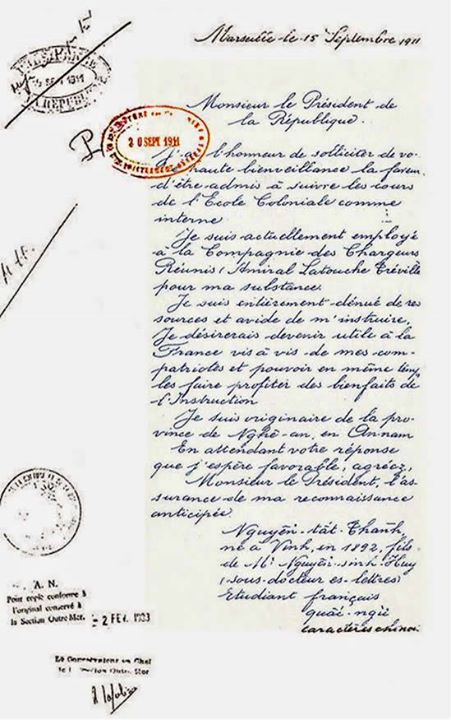 Marseille le 15 Septembre 1911
Monsieur le Président de
la République.
20 SEPT 1911
l'honneur de solliciter de vo-
haute bienveillance la faveur
d'être admis à suivre les cours
de l'Ecole Coloniale comme
interne
Je suis actuellement employé
à la Compagnie des Chargeurs
Réunis (Amiral Latouche Tréville
pour ma substance.
Je suis entièrement dénué de res
sources et avide de m'instruire.
Je désirerais devenir utile à la
France vis à vis de mes com-
patriotes et pouvoir en même temps
les faire profiter des bienfaits de
l'Instruction
Je suis originaire de la pro-
vince de Nghê-an, en Annam
En attendant votre réponse
que j'espère favorable, agréez,
Monsieur le Président, l'as
surance de ma reconnaissance
anticipée
Nguyễn-tât-Thanh,
né à Vinh, en 1892, fils
de Mr Nguyễn-sinh-Huy
(sous-docteur es-lettres)
Etudiant français
quâi-ngu
caractères chinois
A. N.
Pour copie conforme à
l'original conservé à
la Section Outre-Mer.
- 2 FEV. 1983
Le Conservateur en Chef
de la Section Outre Mer